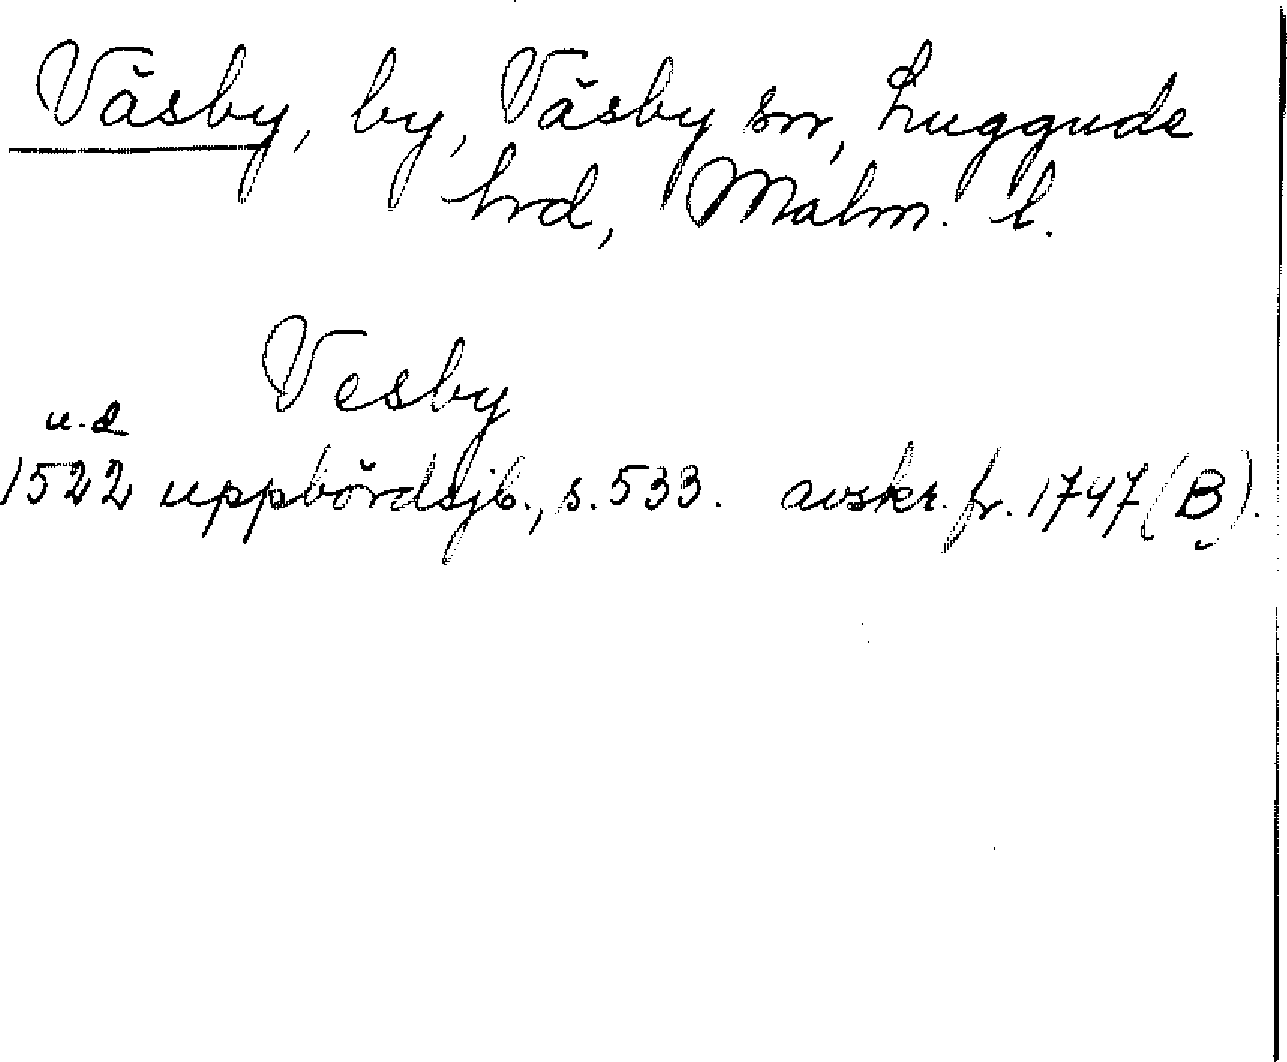 Väsby, by, Väsby sn, Luggude
hrd, Malm. l.
Vesby
u.d
1522 uppbördsjb., s. 533. avskr. fr. 1747 (B).